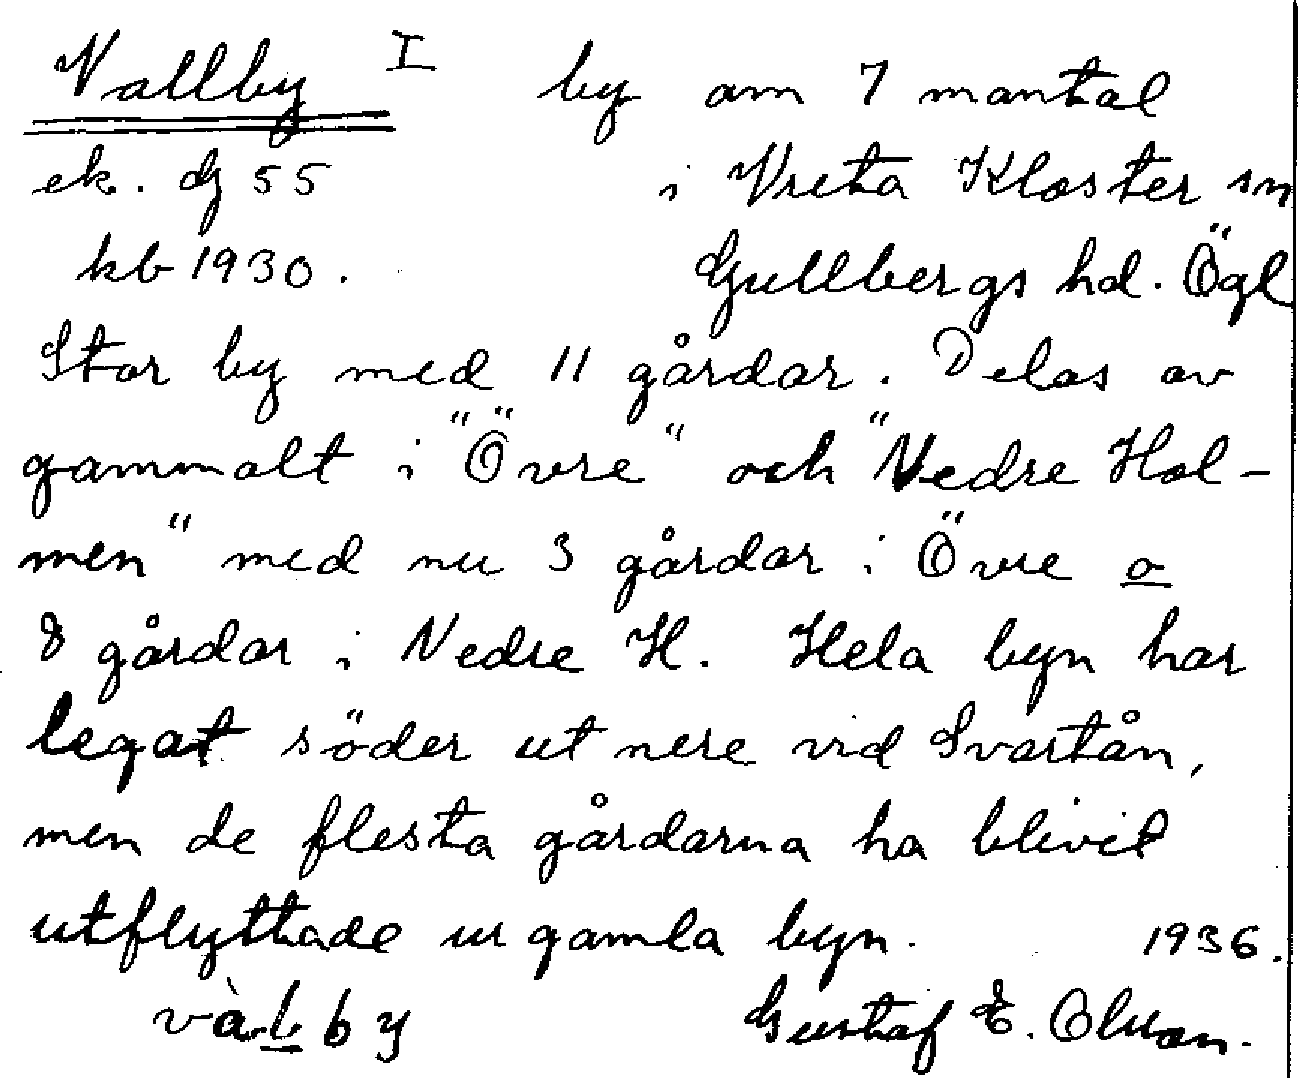 Vallby I by om 7 mantal
ek. dj 55 i Vreta Kloster sn
kb 1930. Gullbergs hd. Ögl
Stor by med 11 gårdar. Delas av
gammalt i "Övre" och "Nedre Hol-
men" med nu 3 gårdar i Övre o
8 gårdar i Nedre H. Hela byn har
legat söder ut nere vid Svartån,
men de flesta gårdarna ha blivit
utflyttade ur gamla byn. 1936.
vàlby Gustaf E. Olsson.